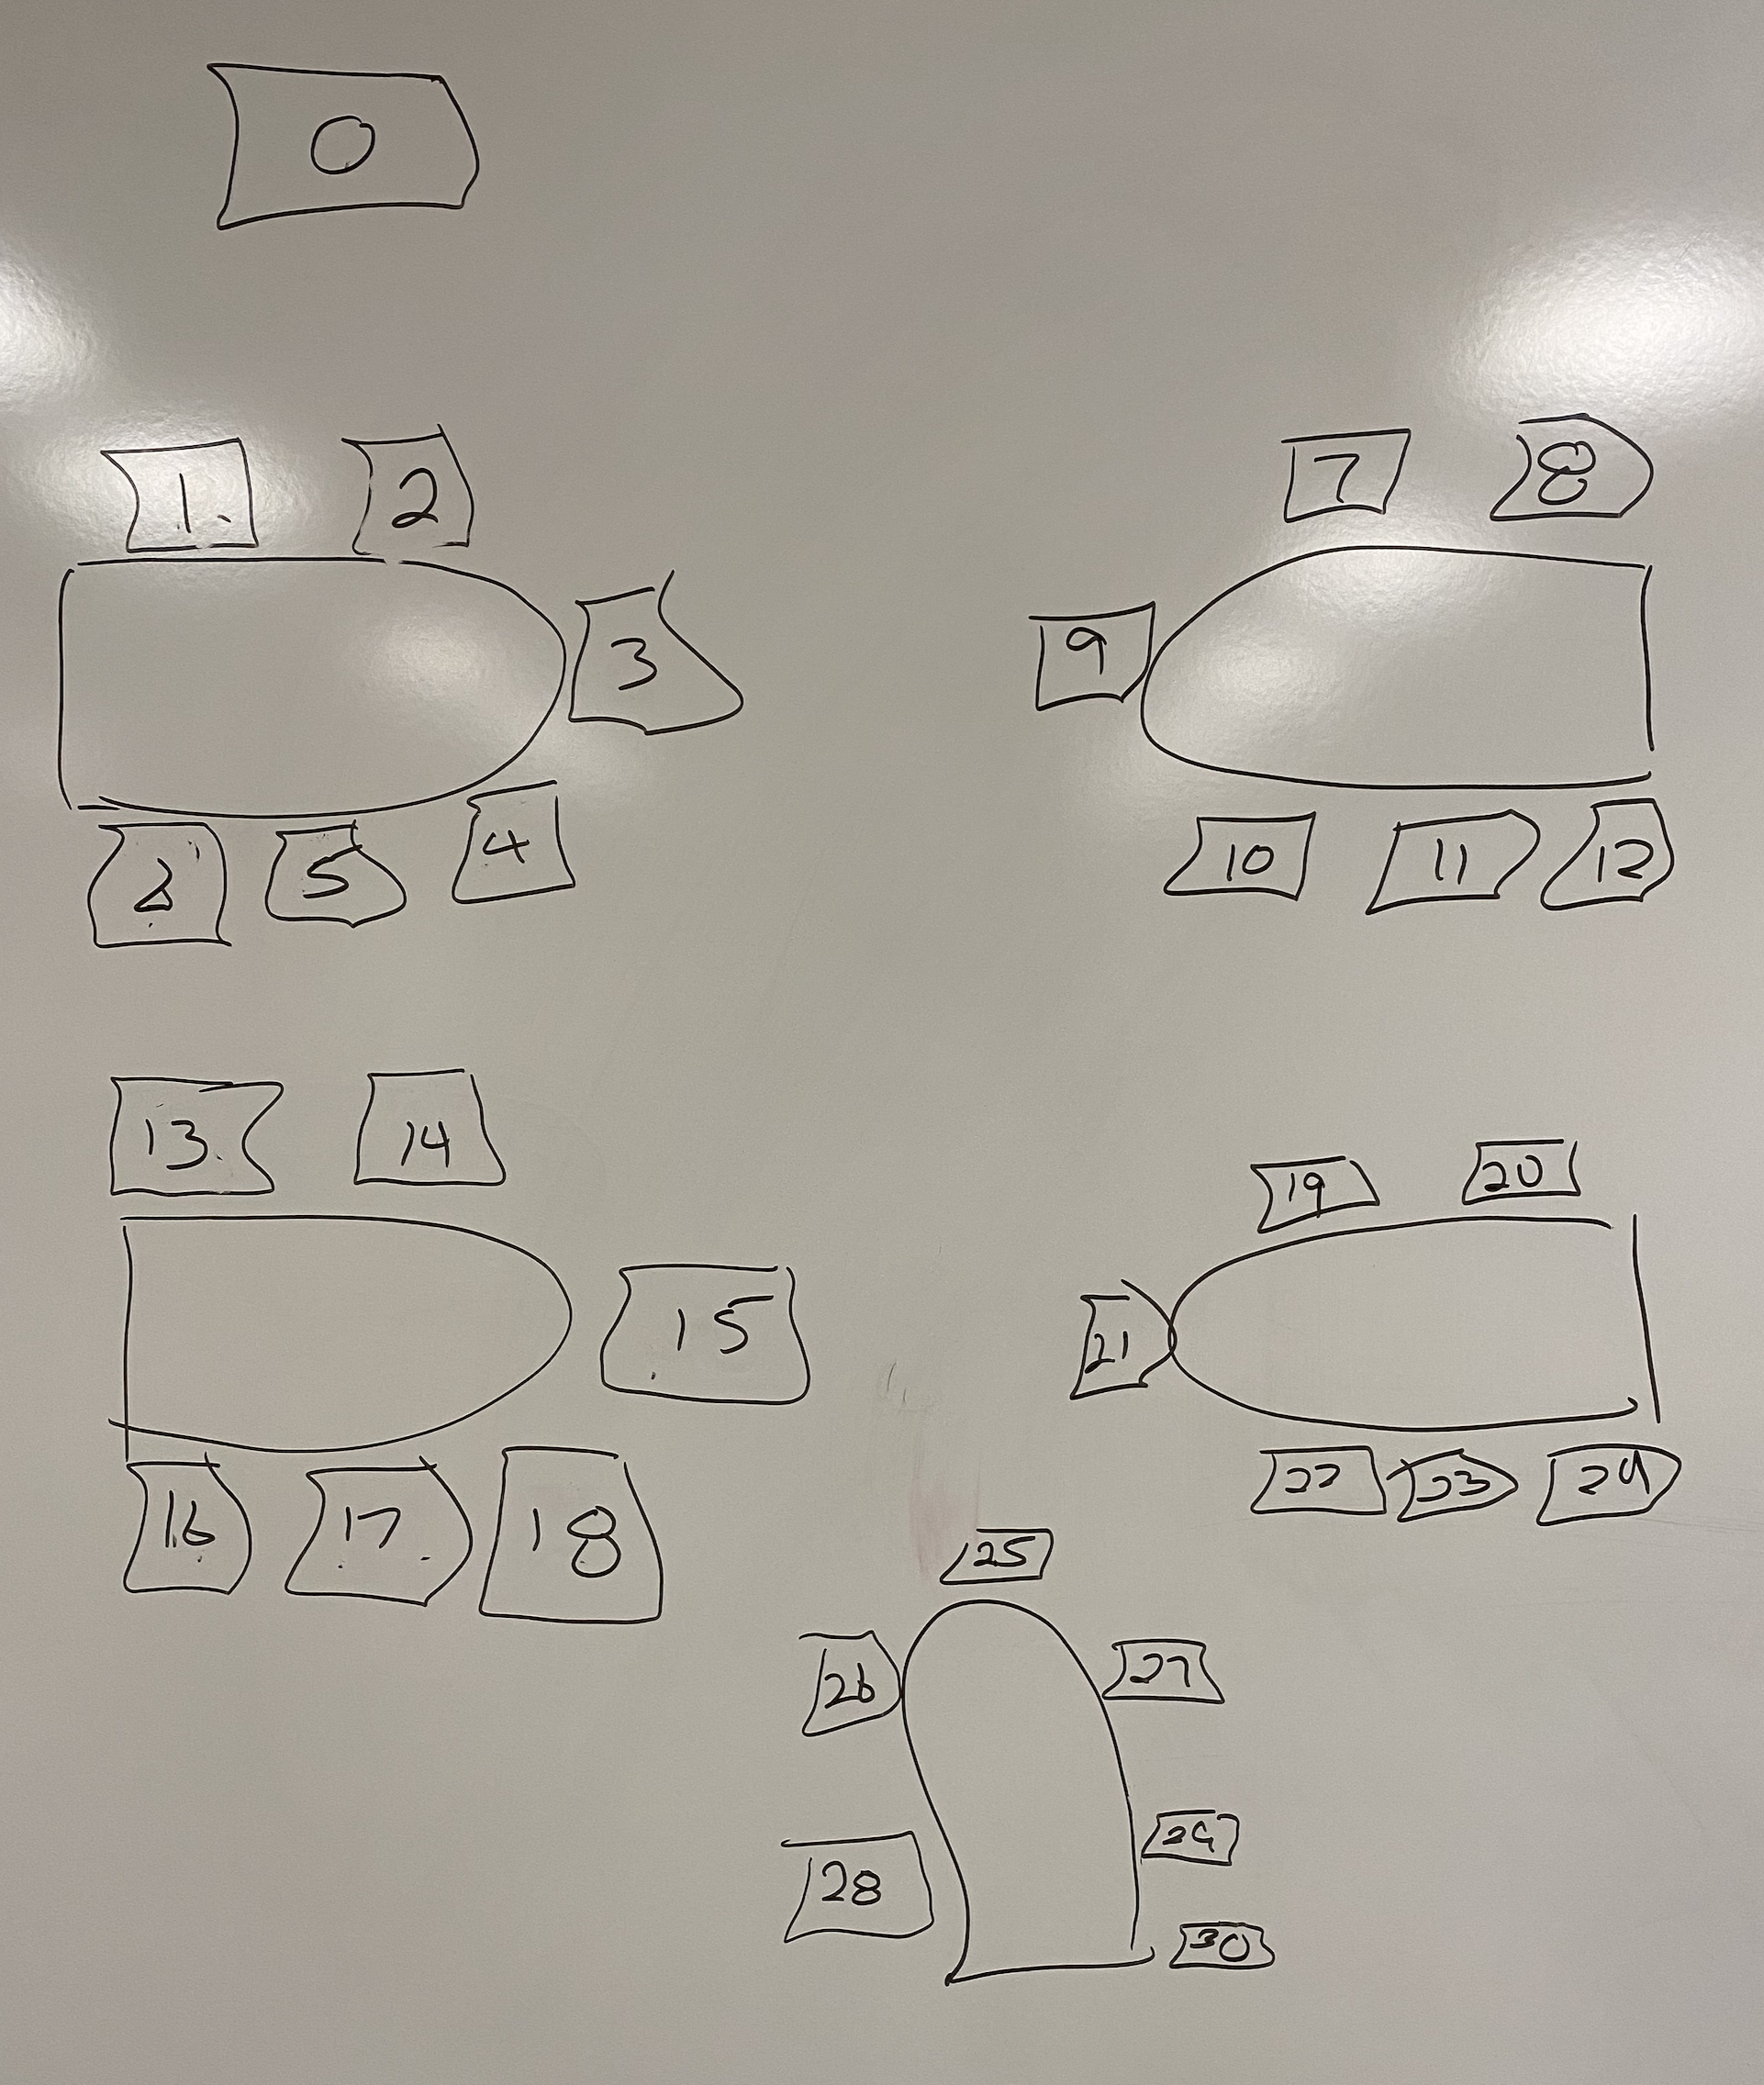 0
1 2
3
5 4
7 8
9
10 11 12
13 14
15
16 17 18
19 20
21
22 23 24
25
26 27
28 29
30